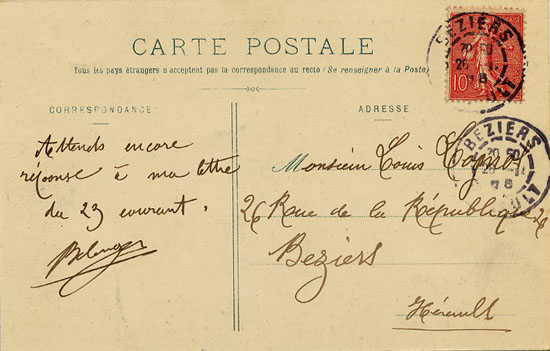 CARTE POSTALE
Tous les pays étrangers n'acceptent pas la correspondance au recto (Se renseigner à la Poste)
CORRESPONDANCE
Attends encore
réponse à ma lettre
du 23 courant.
Belanger
ADRESSE
Monsieur Louis
26 Rue de la République 26
Beziers
Hérault
10
BEZIERS
BEZIERS